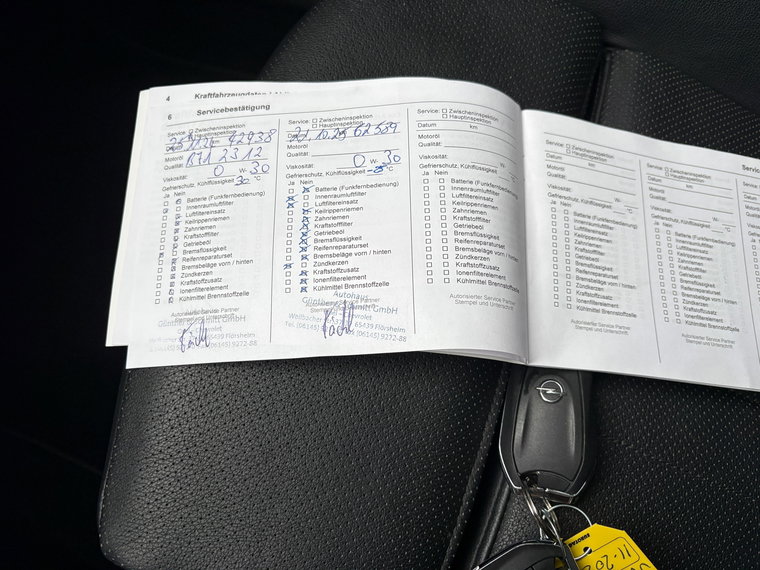 4 Kraftfahrzeugdaten
6 Servicebestätigung
Service: Zwischeninspektion
Hauptinspektion
Datum km 42938
Motoröl
Qualität: B71 2312
Viskosität: 0 W- 30
Gefrierschutz, Kühlflüssigkeit 30 °C
Ja Nein
Batterie (Funkfernbedienung)
Innenraumluftfilter
Luftfiltereinsatz
Keilrippenriemen
Zahnriemen
Kraftstofffilter
Getriebeöl
Bremsflüssigkeit
Reifenreparaturset
Bremsbeläge vorn / hinten
Zündkerzen
Kraftstoffzusatz
Ionenfilterelement
Kühlmittel Brennstoffzelle
Service: Zwischeninspektion
Hauptinspektion
62589
Motoröl
Qualität:
Viskosität: 0 W- 30
Gefrierschutz, Kühlflüssigkeit °C
Ja Nein
Batterie (Funkfernbedienung)
Innenraumluftfilter
Luftfiltereinsatz
Keilrippenriemen
Zahnriemen
Kraftstofffilter
Getriebeöl
Bremsflüssigkeit
Reifenreparaturset
Bremsbeläge vorn / hinten
Zündkerzen
Kraftstoffzusatz
Ionenfilterelement
Kühlmittel Brennstoffzelle
Autohaus
GmbH
65439 Flörsheim
Tel. (06145) 9272-88
Service: Zwischeninspektion
Hauptinspektion
Datum km
Motoröl
Qualität:
Viskosität: W-
Gefrierschutz, Kühlflüssigkeit °C
Ja Nein
Batterie (Funkfernbedienung)
Innenraumluftfilter
Luftfiltereinsatz
Keilrippenriemen
Zahnriemen
Kraftstofffilter
Getriebeöl
Bremsflüssigkeit
Reifenreparaturset
Bremsbeläge vorn / hinten
Zündkerzen
Kraftstoffzusatz
Ionenfilterelement
Kühlmittel Brennstoffzelle
Autorisierter Service Partner
Stempel und Unterschrift
Service: Zwischeninspektion
Hauptinspektion
Datum km
Motoröl
Qualität:
Viskosität: W-
Gefrierschutz, Kühlflüssigkeit °C
Ja Nein
Batterie (Funkfernbedienung)
Innenraumluftfilter
Luftfiltereinsatz
Keilrippenriemen
Zahnriemen
Kraftstofffilter
Getriebeöl
Bremsflüssigkeit
Reifenreparaturset
Bremsbeläge vorn / hinten
Zündkerzen
Kraftstoffzusatz
Ionenfilterelement
Kühlmittel Brennstoffzelle
Autorisierter Service Partner
Stempel und Unterschrift
Service: Zwischeninspektion
Hauptinspektion
Datum km
Motoröl
Qualität:
Viskosität:
Gefrierschutz, Kühlflüssigkeit
Ja Nein
Batterie (Funkfernbedienung)
Innenraumluftfilter
Luftfiltereinsatz
Keilrippenriemen
Zahnriemen
Kraftstofffilter
Getriebeöl
Bremsflüssigkeit
Reifenreparaturset
Bremsbeläge vorn / hinten
Zündkerzen
Kraftstoffzusatz
Ionenfilterelement
Kühlmittel Brennstoffzelle
Autorisierter Service Partner
Stempel und Unterschrift